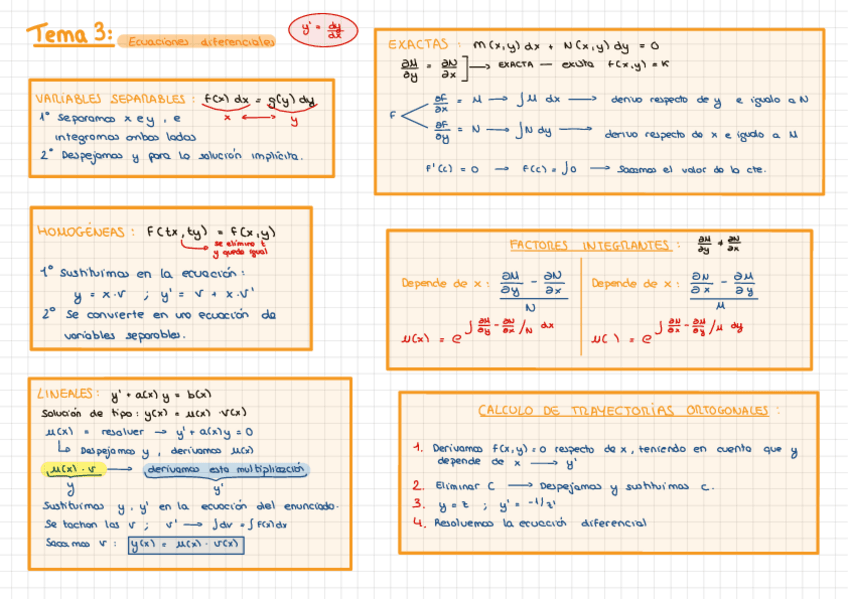 Tema 3:
Ecuaciones diferenciales
y' = dy/dx
VARIABLES SEPARABLES : f(x) dx = g(y) dy
x ⟷ y
1° Separamos x e y , e
integramos ambos lados
2° Despejamos y para la solución implícita.
HOMOGÉNEAS : F(tx,ty) = F(x,y)
se elimina t
y queda igual
1° Sustituimos en la ecuación:
y = x·v ; y' = v + x·v'
2° Se convierte en una ecuación de
variables separables.
LINEALES : y' + a(x) y = b(x)
Solución de tipo: y(x) = u(x) · v(x)
u(x) = resolver → y' + a(x)y = 0
Despejamos y , derivamos u(x)
u(x) · v → derivamos esta multiplicación
y y'
Sustituimos y, y' en la ecuación del enunciado.
Se tachan las v ; v' → ∫dv = ∫f(x)dx
Sacamos v : y(x) = u(x) · v(x)
EXACTAS : M(x,y) dx + N(x,y) dy = 0
∂M/∂y = ∂N/∂x → EXACTA — exista f(x,y) = K
F
∂F/∂x = M → ∫M dx → derivo respecto de y e igualo a N
∂F/∂y = N → ∫N dy → derivo respecto de x e igualo a M
F'(c) = 0 → F(c) = ∫0 → Sacamos el valor de la cte.
FACTORES INTEGRANTES : ∂M/∂y ≠ ∂N/∂x
Depende de x : ∂M/∂y - ∂N/∂x / N
u(x) = e^∫ ∂M/∂y - ∂N/∂x /N dx
Depende de x : ∂N/∂x - ∂M/∂y / M
u( ) = e^∫ ∂N/∂x - ∂M/∂y /M dy
CALCULO DE TRAYECTORIAS ORTOGONALES :
1. Derivamos f(x,y)=0 respecto de x, teniendo en cuenta que y
depende de x → y'
2. Eliminar C → Despejamos y sustituimos c.
3. y = z ; y' = -1/z'
4. Resolvemos la ecuación diferencial